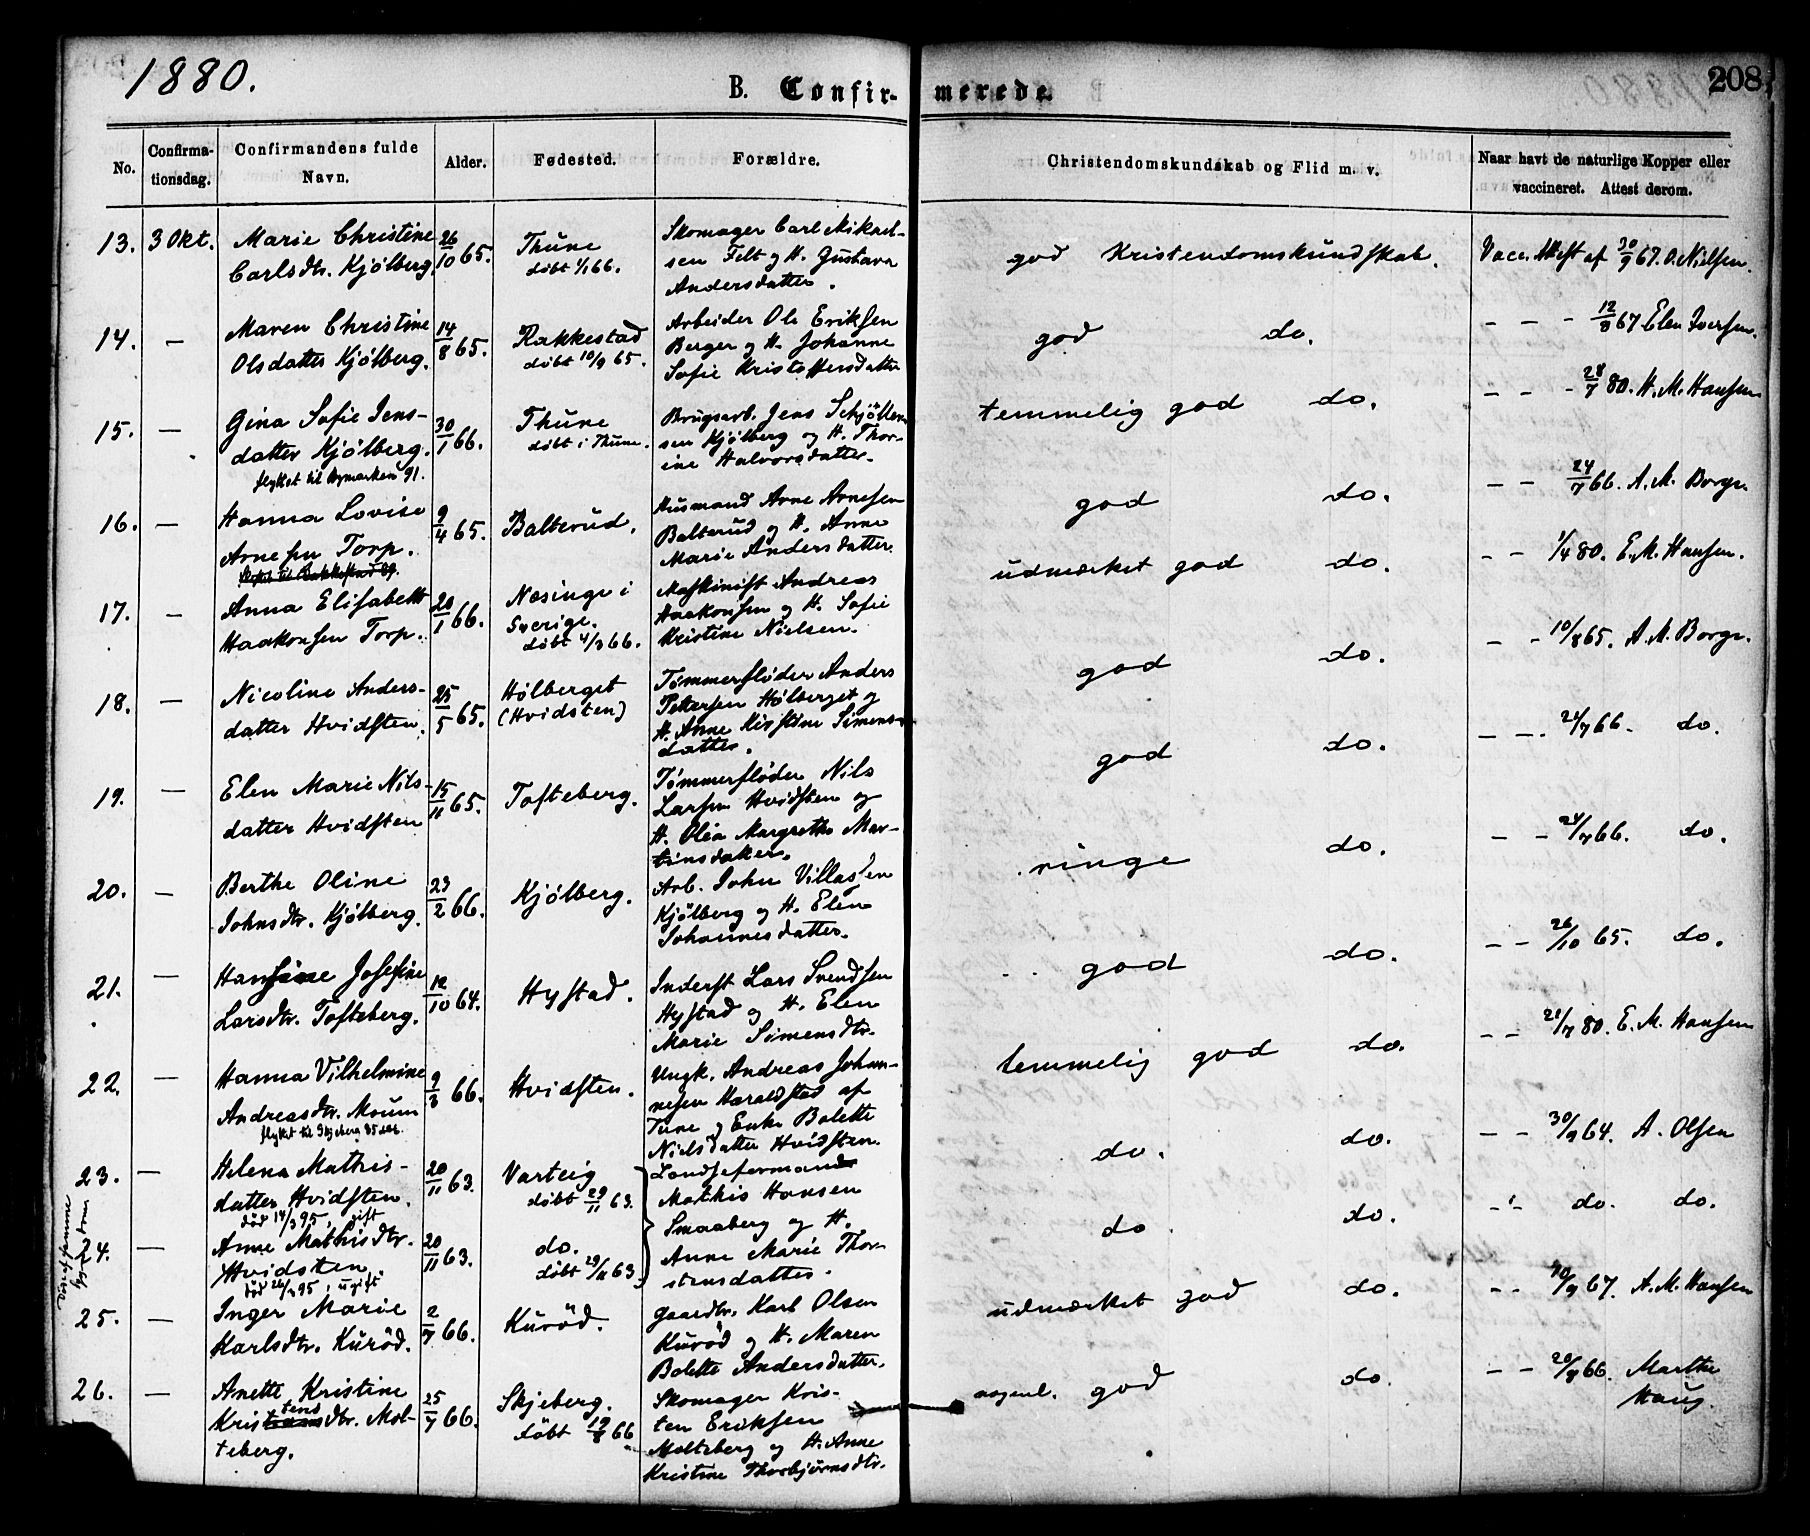 1880.
B. Confir- merede.
208
No.
Confirma-
tionsdag.
Confirmandens fulde
Navn.
Alder.
Fødested.
Forældre.
Christendomskundskab og Flid m. v.
Naar havt de naturlige Kopper eller
vaccineret. Attest derom.
13. 3 Okt. Marie Christine 26/10 65. Thune Skomager Carl Mikael-
Carlsdtr. Kjølberg døbt 1/1 66. sen Felt og H. Gustava
Andersdatter.
god Kristendomskundskab. Vacc. Attest af 30/9 67. O. Nielsen.
14. — Maren Christine 14/8 65. Rakkestad Arbeider Ole Eriksen
Olsdatter Kjølberg. døbt 10/9 65. Berger og H. Johanne
Sofie Kristoffersdatter
god do. - - - 12/8 67 Elen Iversen.
15. — Gina Sofie Jens- 30/1 66. Thune Brugsarb. Jens Schjötten-
datter Kjølberg. døbt i Thune. sen Kjølberg og H. Thor-
flyttet til Bymarken 91. ine Halvorsdatter.
temmelig god do. - - - 28/7 80. H. M. Hansen
16. — Hanna Lovise 9/4 65. Balterud. Husmand Arne Arnesen
Arnesen Torp. Balterud og H. Anne
Marie Andersdatter.
god do. - - 24/7 66. A. M. Borge.
17. — Anna Elisabeth 20/1 66. Næsinge i Maskinist Andreas
Haakonsen Torp. Sverige. Haakonsen og H. Sofie
døbt 4/3 66. Kristine Nielsen.
udmærket god do. - - 1/4 80. E. M. Hansen.
18. — Nicoline Anders- 25/5 65. Hølberget Tømmerfløder Anders
datter Hvidsten. (Hvidsten) Pettersen Hølberget og
H. Anne Kirstine Simens-
datter.
god do. - - 10/8 65. A. M. Borge.
19. — Elen Marie Nils- 15/11 65. Tofteberg. Tømmerfløder Nils
datter Hvidsten Larsen Hvidsten og
H. Olea Margrethe Mar-
tinsdatter.
god do. - - 24/7 66. do.
20. — Berthe Oline 23/2 66. Kjølberg. Arb. John Villasen
Johnsdtr. Kjølberg. Kjølberg og H. Elen
Johannesdatter.
ringe do. - - 24/7 66. do.
21. — Hansine Josefine 12/10 64. Hystad. Inderst Lars Svendsen
Larsdtr. Tofteberg. Hystad og H. Elen
Marie Simensdtr.
god do. - - 26/10 65. do.
22. — Hanna Vilhelmine 9/3 66. Hvidsten. Ungk. Andreas Johan-
Andreasdtr. Moum nesen Haraldstad af
flyttet til Skjeberg Tune og Enke Bolette
Nielsdatter Hvidsten.
temmelig god do. - - 21/7 80. E. M. Hansen
23. — Helena Mathis- 20/11 63. Varteig Landhermand
datter Hvidsten. døbt 29/11 63. Mathis Hansen
død 14/3 95, gift Smaaberg og H.
do. do. - - 30/9 64. A. Olsen
24. — Anne Mathisdtr. 20/11 63. do. Anne Marie Thor-
Hvidsten. døbt 29/11 63. stensdatter.
død 26/3 95, ugift
do do. - - do. do.
25. — Inger Marie 2/7 66. Kurød. Gaardbr. Karl Olsen
Karlsdtr. Kurød. Kurød og H. Maren
Bolette Andersdatter.
udmærket god do. - - 30/9 67. A. M. Hansen
26. — Anette Kristine 25/7 66. Skjeberg. Skomager Kris-
Kristensdtr. Mol- døbt 19/8 66 ten Eriksen
teberg. Molteberg og H. Anne
Kristine Thorbjørnsdtr.
nogenl. god do. - - 20/8 66. Marthe
Haug.